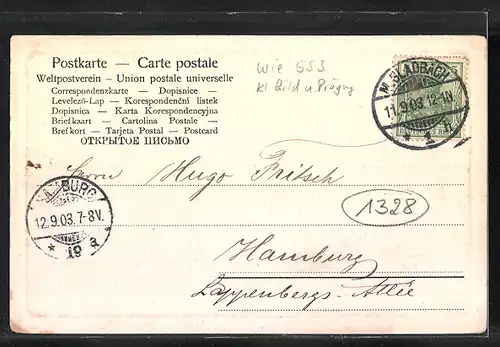 Postkarte — Carte postale
Weltpostverein - Union postale universelle
Correspondenzkarte – Dopisnice –
Levelező-Lap — Korespondenční lístek
Dopisnica – Karta Korespondencyjna
Briefkaart – Cartolina Postale –
Brefkort - Tarjeta Postal – Postcard
ОТКРЫТОЕ ПИСЬМО
wie 553
kl Bild u. Prägung
M.GLADBACH
11.9.03.12-1N
* 1 a
DEUTSCHES REICH
Herrn Hugo Fritsch
1328
HAMBURG
12.9.03.7-8V.
* 19 a
Hamburg
Lappenbergs-Allée